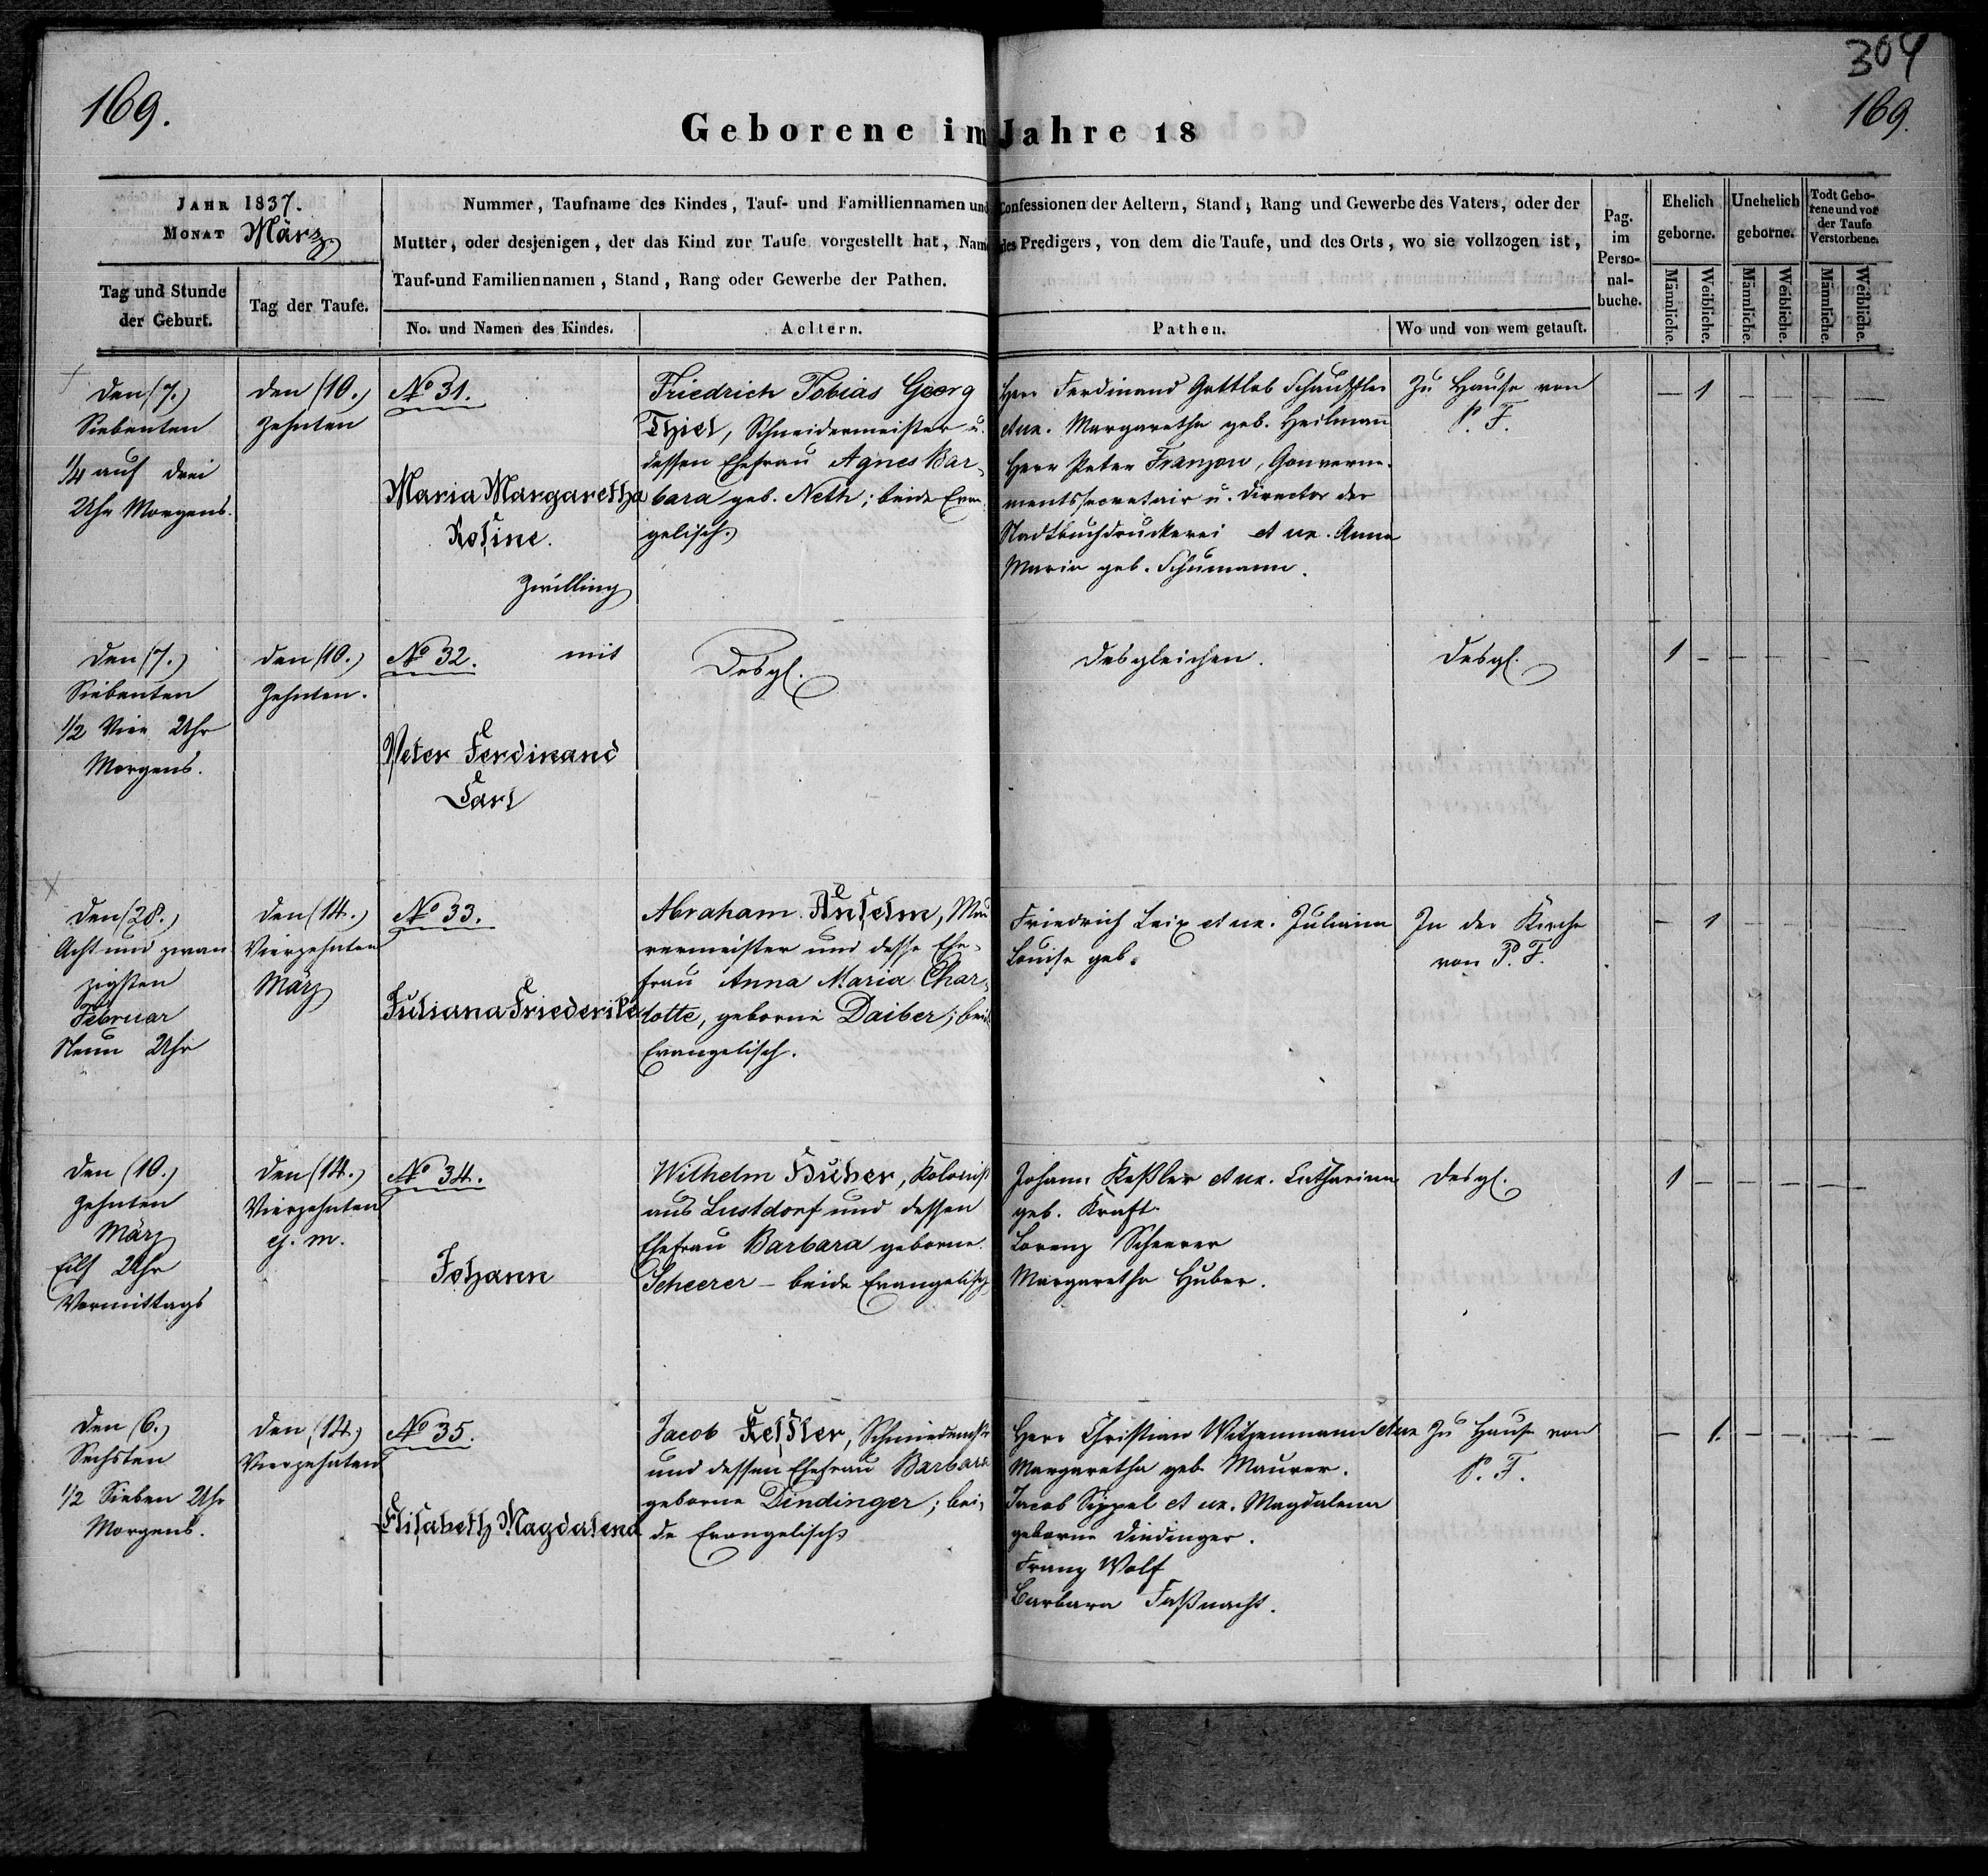 304
169.
169.
Geborene im Jahre 18
JAHR 1837.
MONAT März
Nummer, Taufname des Kindes, Tauf- und Familliennamen und Confessionen der Aeltern, Stand, Rang und Gewerbe des Vaters, oder der
Mutter, oder desjenigen, der das Kind zur Taufe vorgestellt hat, Name des Predigers, von dem die Taufe, und des Orts, wo sie vollzogen ist,
Tauf-und Familiennamen, Stand, Rang oder Gewerbe der Pathen.
Tag und Stunde
der Geburt.
Tag der Taufe.
No. und Namen des Kindes.
Aeltern.
Pathen.
Wo und von wem getauft.
Pag.
im
Perso-
nal-
buche.
Ehelich
geborne.
Unehelich
geborne.
Todt Gebo-
rene und vor
der Taufe
Verstorbene.
Männliche.
Weibliche.
Männliche.
Weibliche.
Männliche.
Weibliche.
den (7.)
Siebenten
1/4 auf drei
Uhr Morgens.
den (10.)
Zehnten
No 31.
Maria Margaretha
Rosine.
Zwilling
Friedrich Tobias Georg
Thiel, Schneidermeister u.
dessen Ehefrau Agnes Bar-
bara geb. Neth; beide Evan
gelisch.
Herr Ferdinand Gottlob
et ux. Margaretha geb. Heilmann
Herr Peter Franzow, Gouverne-
mentssecretair u. Director der
Stadtbuchdruckerei et ux. Anna
Maria geb. Schumann.
Zu Hause von
P. F.
— 1 — — — —
den (7.)
Siebenten
1/2 Vier Uhr
Morgens.
den (10.)
Zehnten.
No 32. mit
Peter Ferdinand
Carl
Desgl.
Desgleichen.
Desgl.
1 — — — — —
den (28.)
Acht und zwan
zigsten
Februar
Neun Uhr
den (14.)
Vierzehnten
März
No 33.
Juliana Friederike
Abraham Anselm, Mau
rermeister und desse Ehe-
frau Anna Maria Char-
lotte, geborne Daiber; beide
Evangelisch.
Friedrich Leix et ux. Juliana
Louise geb.
In der Kirche
von P. F.
— 1 — — — —
den (10.)
Zehnten
März
Eilf Uhr
Vormittags
den (14.)
Vierzehnten
ej. m.
No 34.
Johann
Wilhelm Huber, Kolonist
aus Lustdorf und dessen
Ehefrau Barbara geborne
Scheerer — beide Evangelisch
Johann Keßler et ux. Catharina
geb. Kraft.
Lorenz Scheerer
Margaretha Huber.
Desgl.
1 — — — — —
den (6.)
Sechsten
1/2 Sieben Uhr
Morgens.
den (14.)
Vierzehnten
No 35.
Elisabeth Magdalena
Jacob Keßler, Schmiedemstr
und dessen Ehefrau Barbara
geborne Dindinger; bei-
de Evangelisch
Herr Christian Witzenmann et ux
Margaretha geb. Maurer.
Jacob Sippel et ux. Magdalena
geborne Dindinger.
Franz Wolf
Barbara Faßnacht.
Zu Hause von
P. F.
— 1. — — — —